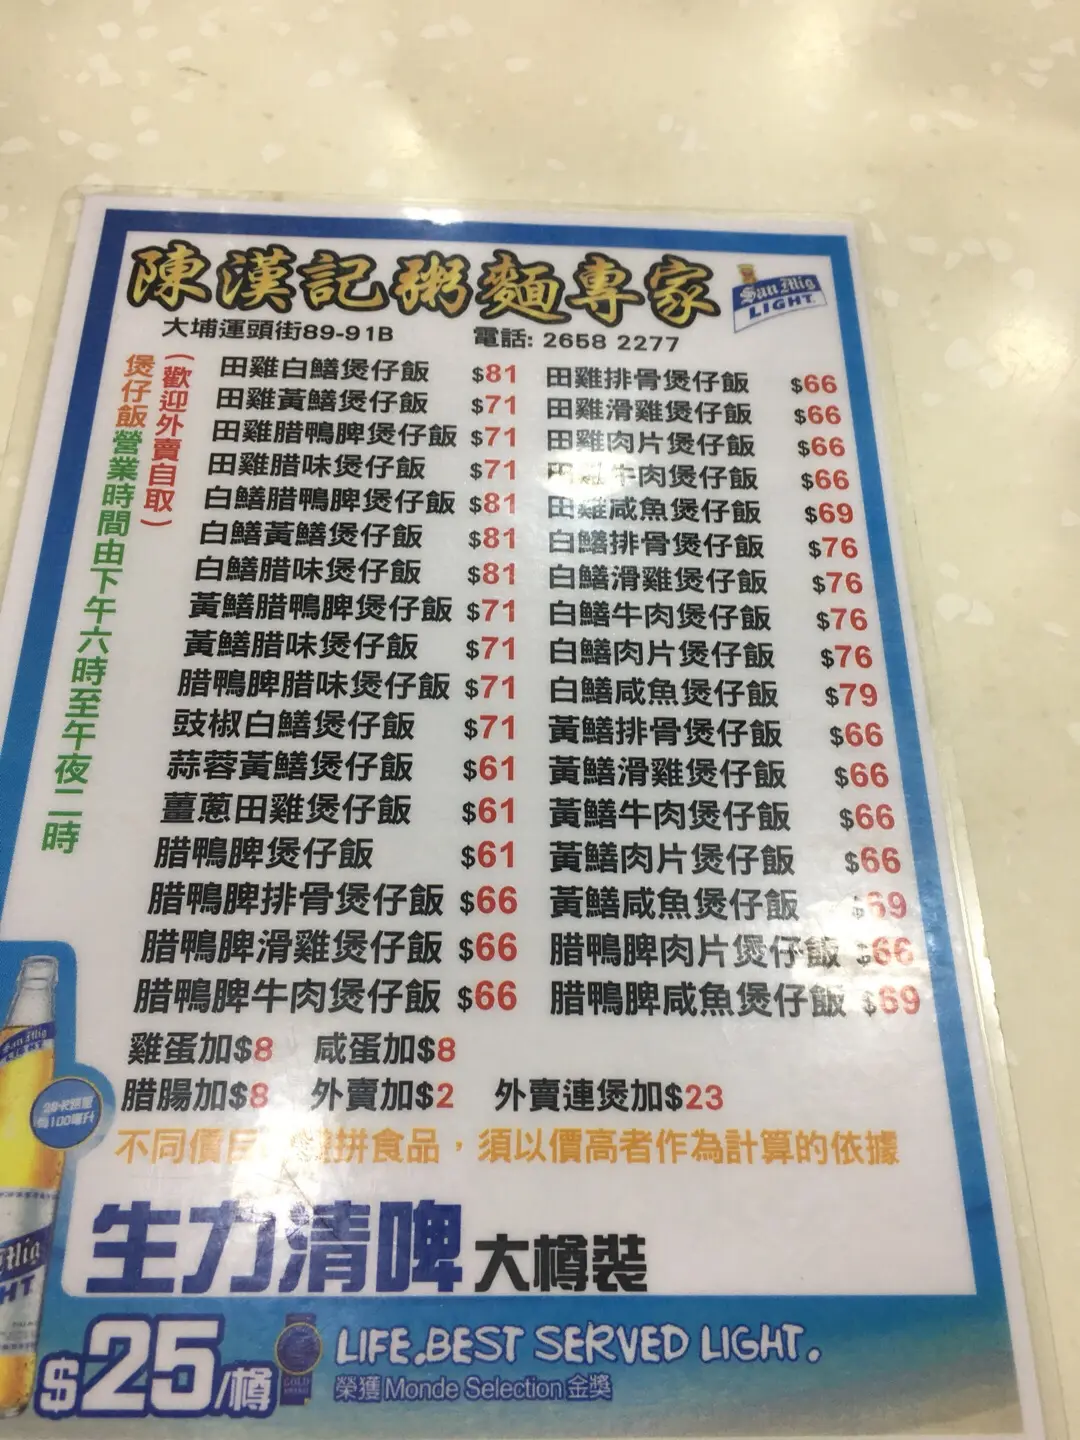 陳漢記粥麵專家
San Mig
LIGHT
大埔運頭街89-91B 電話: 2658 2277
(歡迎外賣自取)
煲仔飯營業時間由下午六時至午夜二時
田雞白鱔煲仔飯 $81
田雞黃鱔煲仔飯 $71
田雞腊鴨脾煲仔飯 $71
田雞腊味煲仔飯 $71
白鱔腊鴨脾煲仔飯 $81
白鱔黃鱔煲仔飯 $81
白鱔腊味煲仔飯 $81
黃鱔腊鴨脾煲仔飯 $71
黃鱔腊味煲仔飯 $71
腊鴨脾腊味煲仔飯 $71
豉椒白鱔煲仔飯 $71
蒜蓉黃鱔煲仔飯 $61
薑蔥田雞煲仔飯 $61
腊鴨脾煲仔飯 $61
腊鴨脾排骨煲仔飯 $66
腊鴨脾滑雞煲仔飯 $66
腊鴨脾牛肉煲仔飯 $66
田雞排骨煲仔飯 $66
田雞滑雞煲仔飯 $66
田雞肉片煲仔飯 $66
田雞牛肉煲仔飯 $66
田雞咸魚煲仔飯 $69
白鱔排骨煲仔飯 $76
白鱔滑雞煲仔飯 $76
白鱔牛肉煲仔飯 $76
白鱔肉片煲仔飯 $76
白鱔咸魚煲仔飯 $79
黃鱔排骨煲仔飯 $66
黃鱔滑雞煲仔飯 $66
黃鱔牛肉煲仔飯 $66
黃鱔肉片煲仔飯 $66
黃鱔咸魚煲仔飯 $69
腊鴨脾肉片煲仔飯 $66
腊鴨脾咸魚煲仔飯 $69
雞蛋加$8 咸蛋加$8
腊腸加$8 外賣加$2 外賣連煲加$23
不同價目 拼食品，須以價高者作為計算的依據
生力清啤 大樽裝
$25/樽
LIFE.BEST SERVED LIGHT.
榮獲Monde Selection金獎
San Mig
LIGHT
每100毫升
GOLD